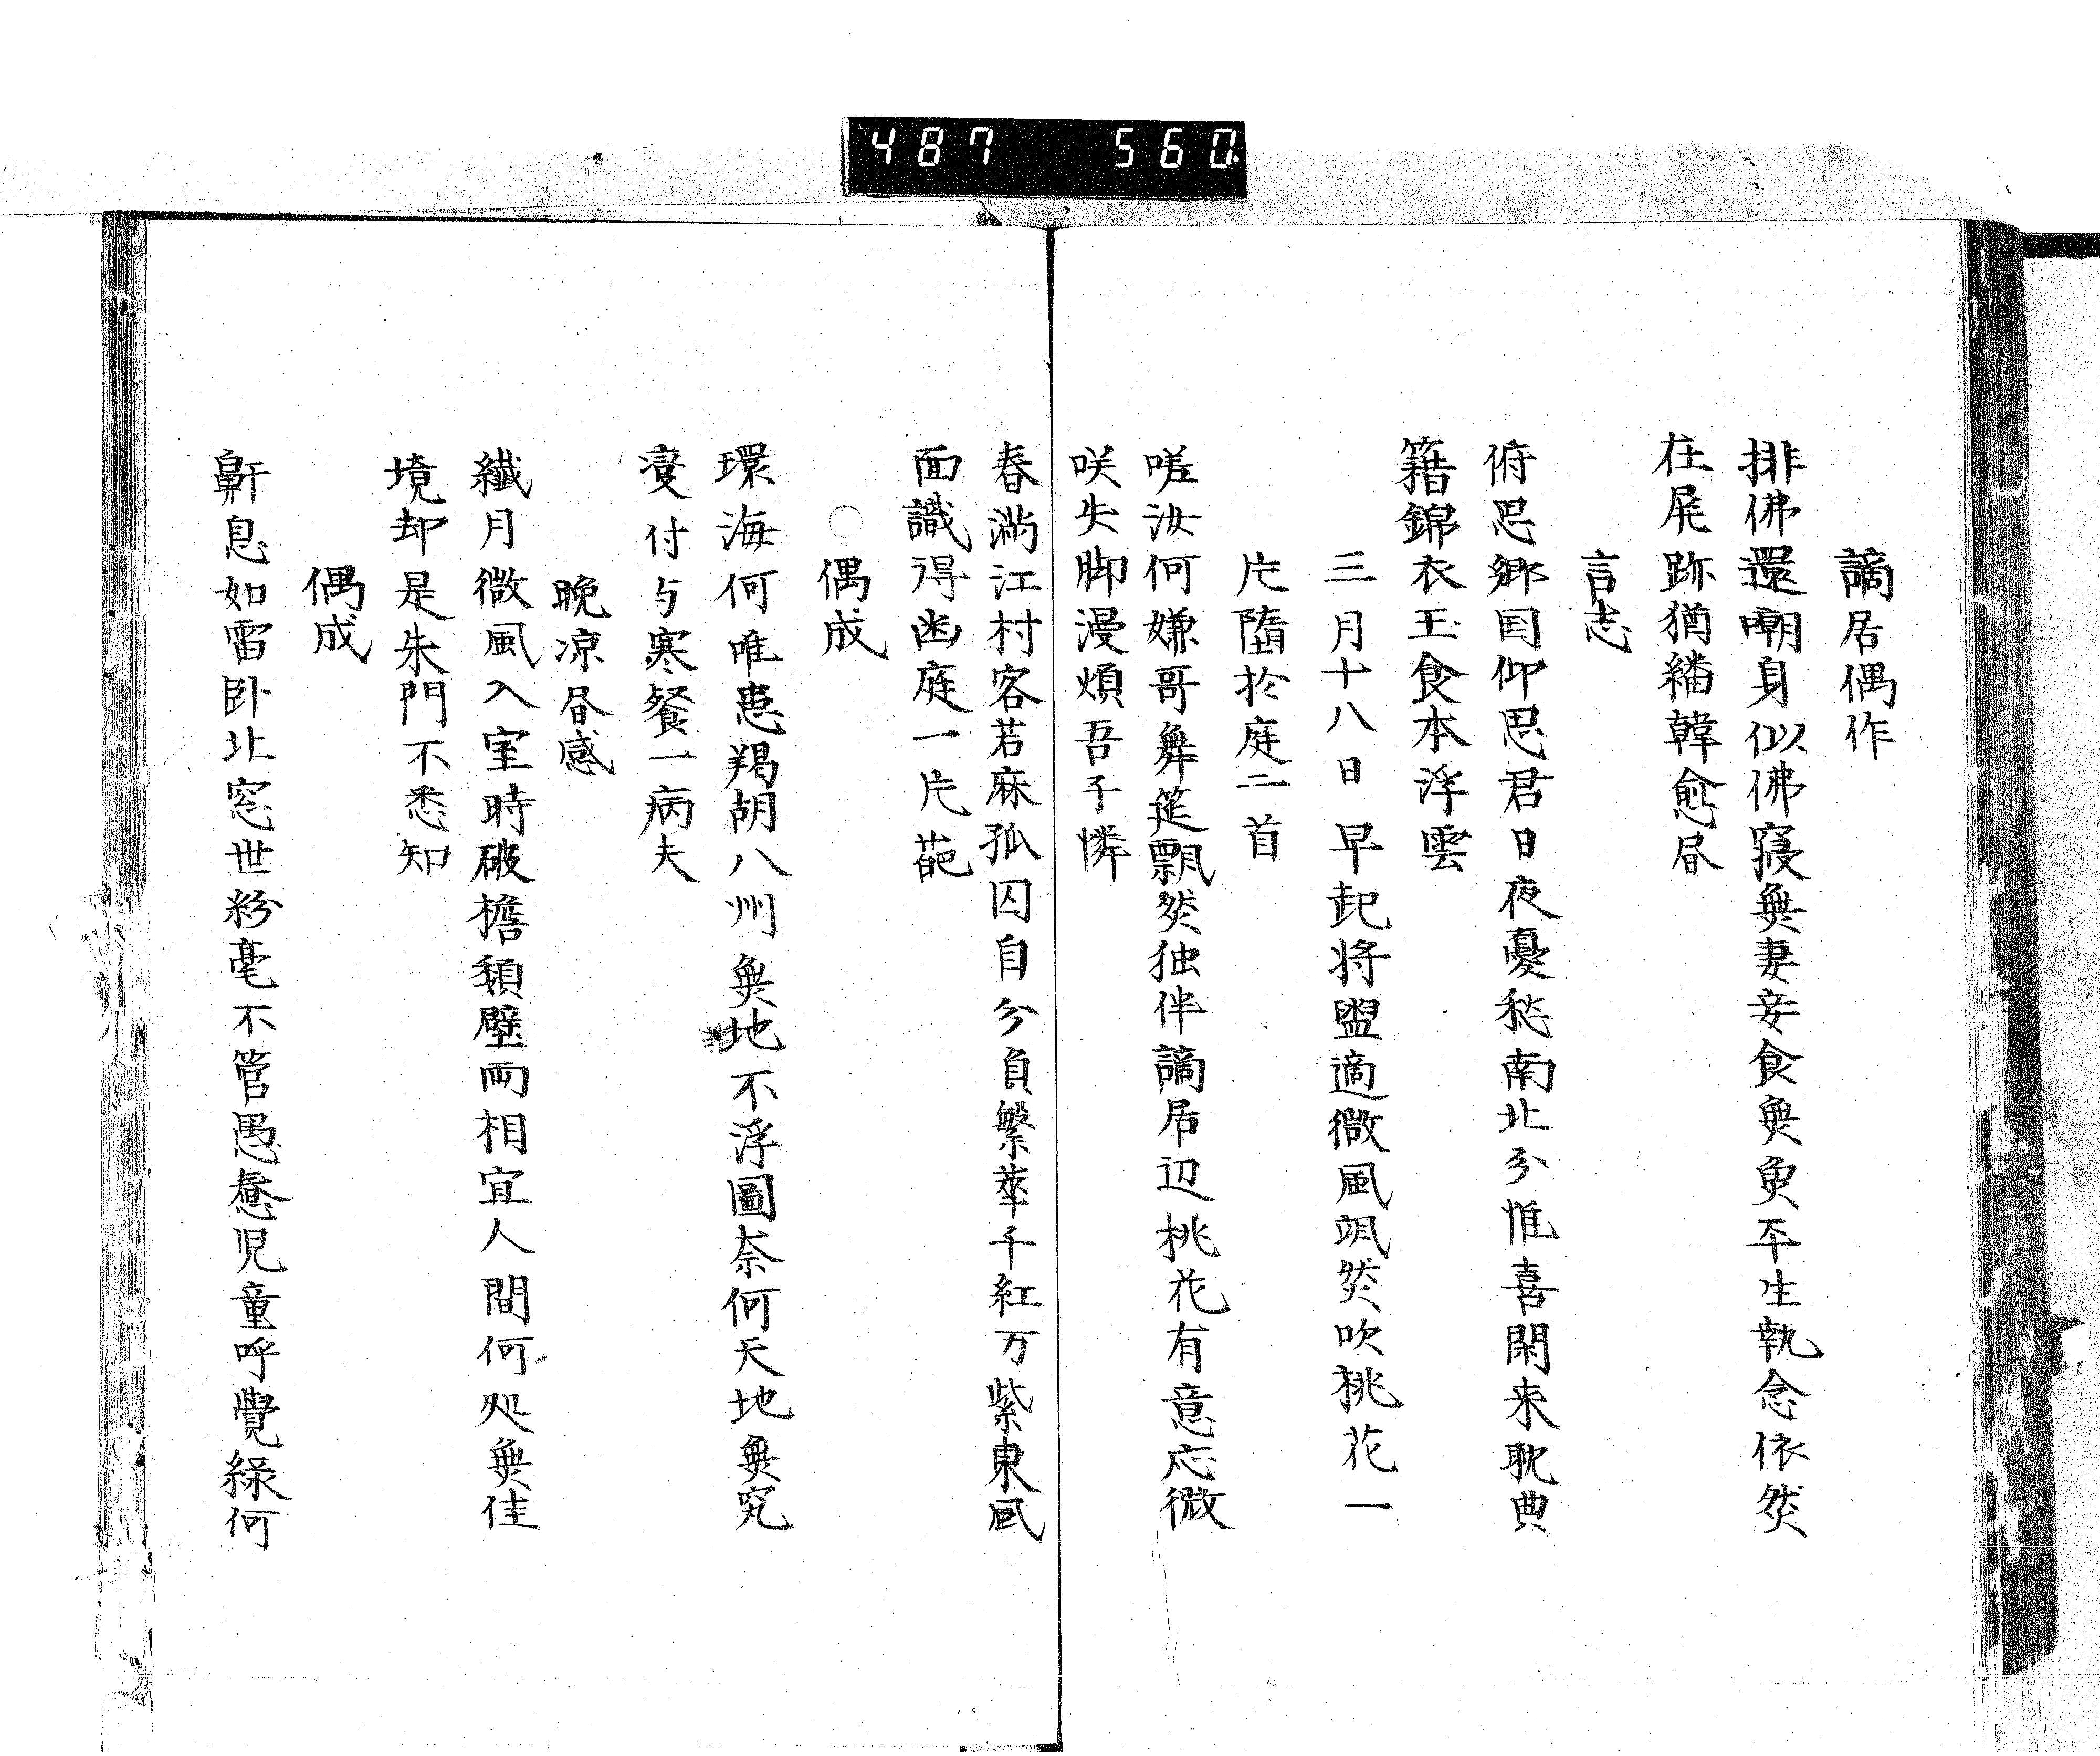 487 560
謫居偶作
排佛還嘲身似佛寝無妻妾食無魚平生執念依然
在屍跡猶繙韓愈昼
言志
俯思郷国仰思君日夜憂愁南北分惟喜閑来耽典
籍錦衣玉食本浮雲
三月十八日早起将盥適微風颯然吹桃花一
片墮於庭二首
嗟汝何嫌哥舞筵飄然独伴謫居辺桃花有意応微
咲失脚漫煩吾子憐
春満江村客若麻孤囚自分負繁華千紅万紫東風
面識得幽庭一片葩
○偶成
環海何唯患羯胡八州無地不浮圖奈何天地無究
変付与寒餐一病夫
晩凉昼感
纎月微風入室時破檐頽壁両相宜人間何処無佳
境却是朱門不悉知
偶成
鼾息如雷卧北窓世紛毫不管愚惷児童呼覺緑何